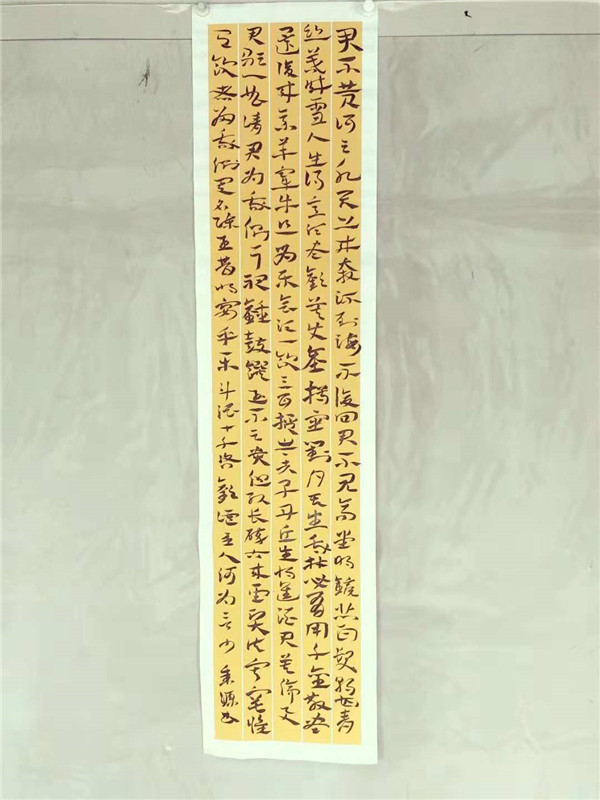 君不黄河之水天上来奔流到海不復回君不見高堂明鏡悲白髮朝如青
絲暮成雪人生得意須盡歡莫使金樽空對月天生我材必有用千金散盡
還復來烹羊宰牛且為樂會須一飲三百杯夫子丹丘生將進酒君莫停
君歌一曲請君為我側耳鐘鼓饌玉不足貴但願長醉來聖賢寂寞惟
飲者為我側名陳王昔時宴平樂斗酒十千恣歡謔主人何為言少